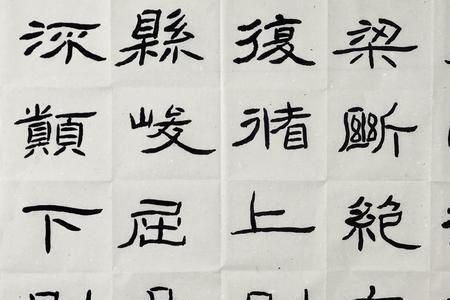 梁斷絕
復循上
縣峻屈
流顛下